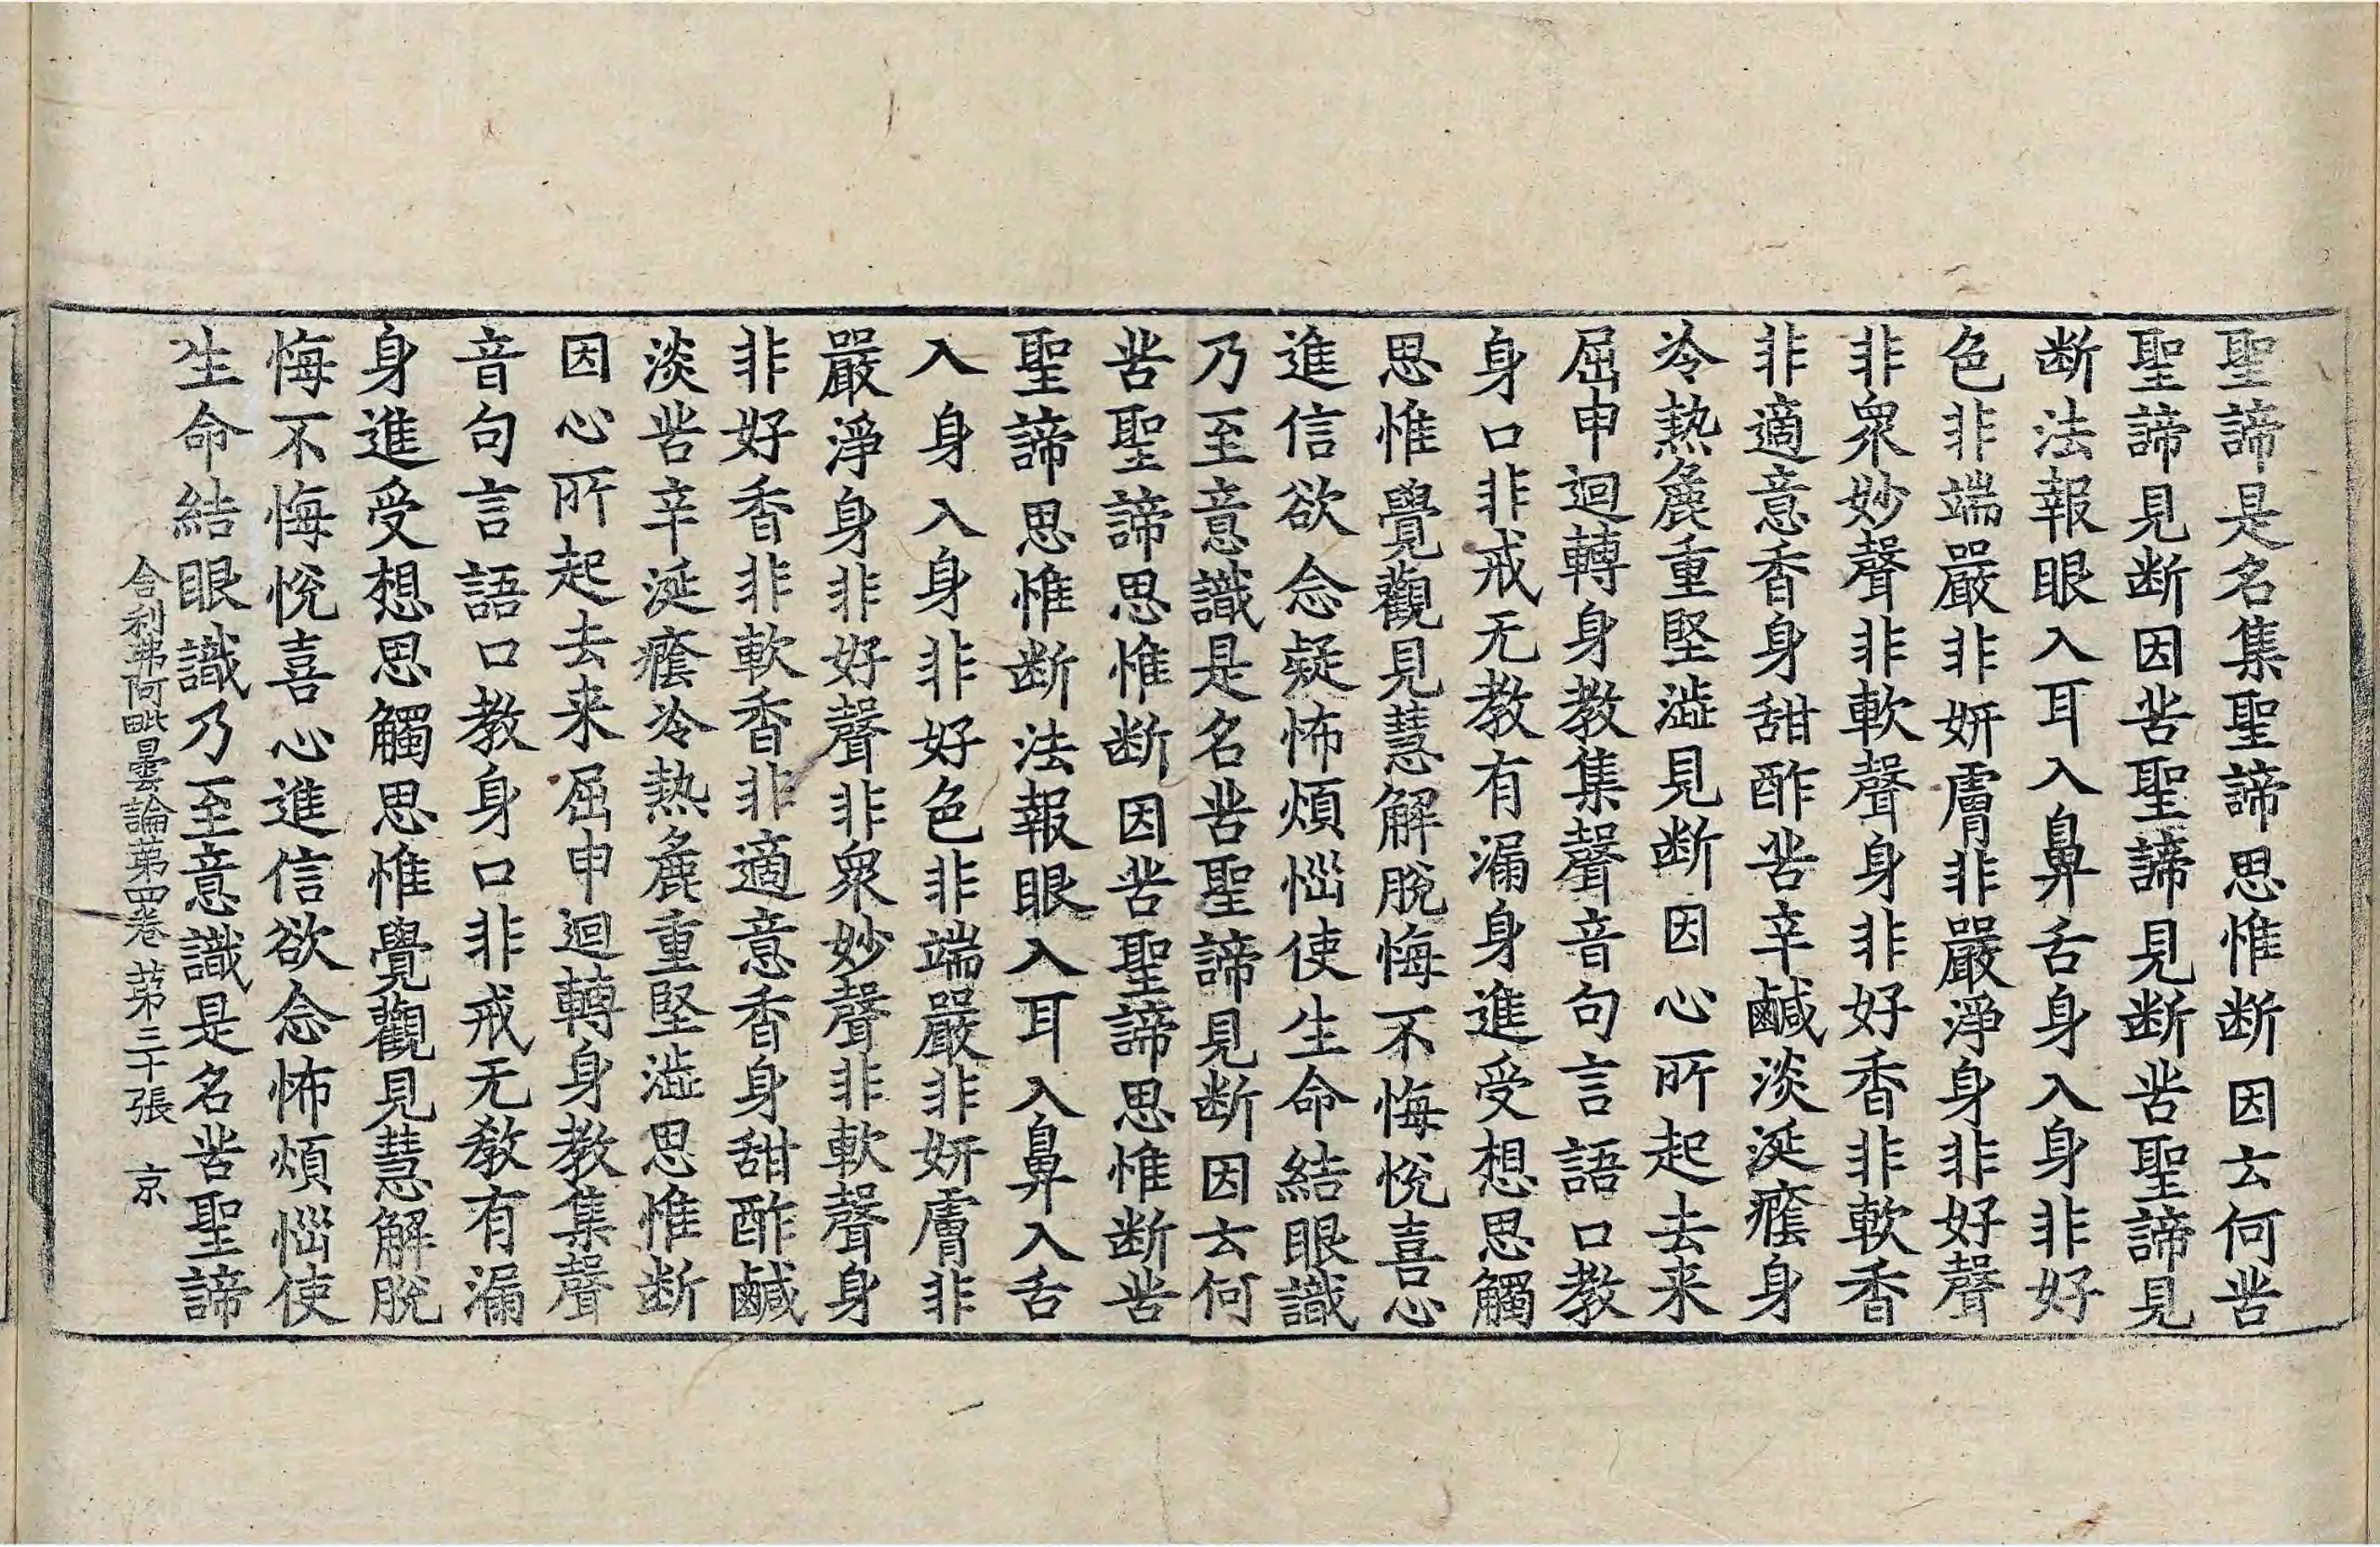 聖諦是名集聖諦思惟断因云何苦
聖諦見断因苦聖諦見断苦聖諦見
断法報眼入耳入鼻舌身入身非好
色非端嚴非妍膚非嚴淨身非好聲
非衆妙聲非軟聲身非好香非軟香
非適意香身甜酢苦辛鹹淡涎癊身
冷熱麁重堅澁見断因心所起去来
屈申迴轉身教集聲音句言語口教
身口非戒无教有漏身進受想思觸
思惟覺觀見慧解脫悔不悔悅喜心
進信欲念疑怖煩惱使生命結眼識
乃至意識是名苦聖諦見断因云何
苦聖諦思惟断因苦聖諦思惟断苦
聖諦思惟断法報眼入耳入鼻入舌
入身入身非好色非端嚴非妍膚非
嚴淨身非好聲非衆妙聲非軟聲身
非好香非軟香非適意香身甜酢鹹
淡苦辛涎癊冷熱麁重堅澁思惟断
因心所起去来屈申迴轉身教集聲
音句言語口教身口非戒无教有漏
身進受想思觸思惟覺觀見慧解脫
悔不悔悅喜心進信欲念怖煩惱使
生命結眼識乃至意識是名苦聖諦
舍利弗阿毗曇論苐四卷 苐三十張 京